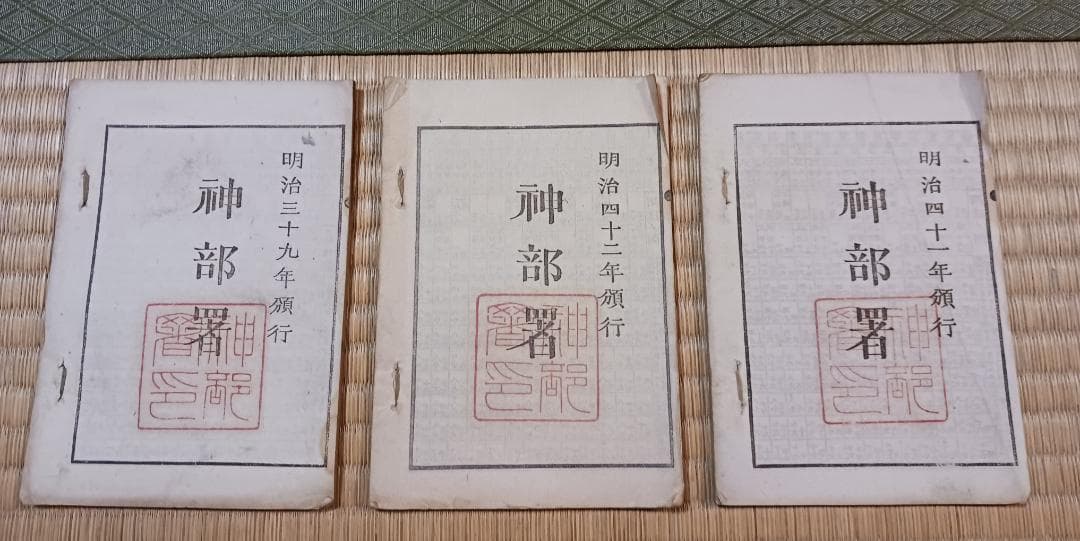 明治三十九年頒行
神部署
神部署印
明治四十二年頒行
神部署
神部署印
明治四十一年頒行
神部署
神部署印